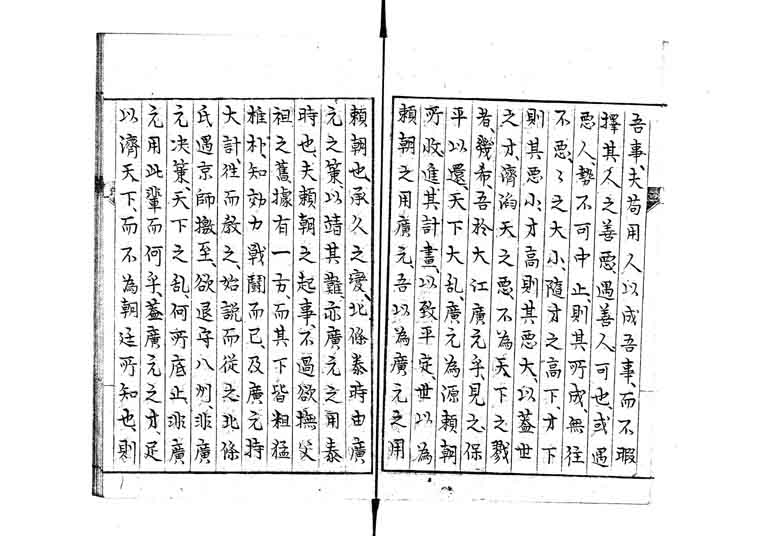 吾事、夫苟用人以成吾事、而不暇
擇其人之善惡、遇善人可也、或遇
惡人、勢不可中止、則其所成、無往
不惡、々之大小、隨才之高下、才下
則其惡小、才高則其惡大、以蓋世
之才、濟滔天之惡、不為天下之戮
者、幾希、吾於大江廣元乎見之、保
平以還、天下大乱、廣元為源賴朝
所收、進其計畫、以致平定、世以為
賴朝之用廣元、吾以為廣元之用
賴朝也、承久之變、北條泰時由廣
元之策、以靖其難、亦廣元之用泰
時也、夫賴朝之起事、不過欲撫父
祖之舊、據有一方、而其下皆粗猛
椎朴、知効力戰鬪而已、及廣元持
大計、往而教之、始説而從之、北條
氏遇京師檄至、欲退守八州、非廣
元决策、天下之乱、何所底止、非廣
元用此輩而何乎、蓋廣元之才、足
以濟天下、而不為朝廷所知也、則